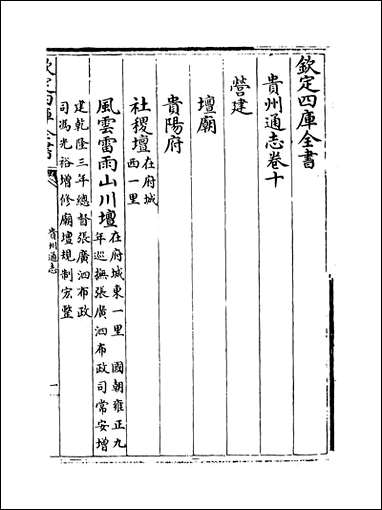 欽定四庫全書
貴州通志卷十
營建
壇廟
貴陽府
社稷壇在府城西一里
風雲雷雨山川壇在府城東一里 國朝雍正九年巡撫張廣泗布政司常安增
建乾隆三年總督張廣泗布政司馮光裕增修廟壇規制宏整
欽定四庫全書
貴州通志
一